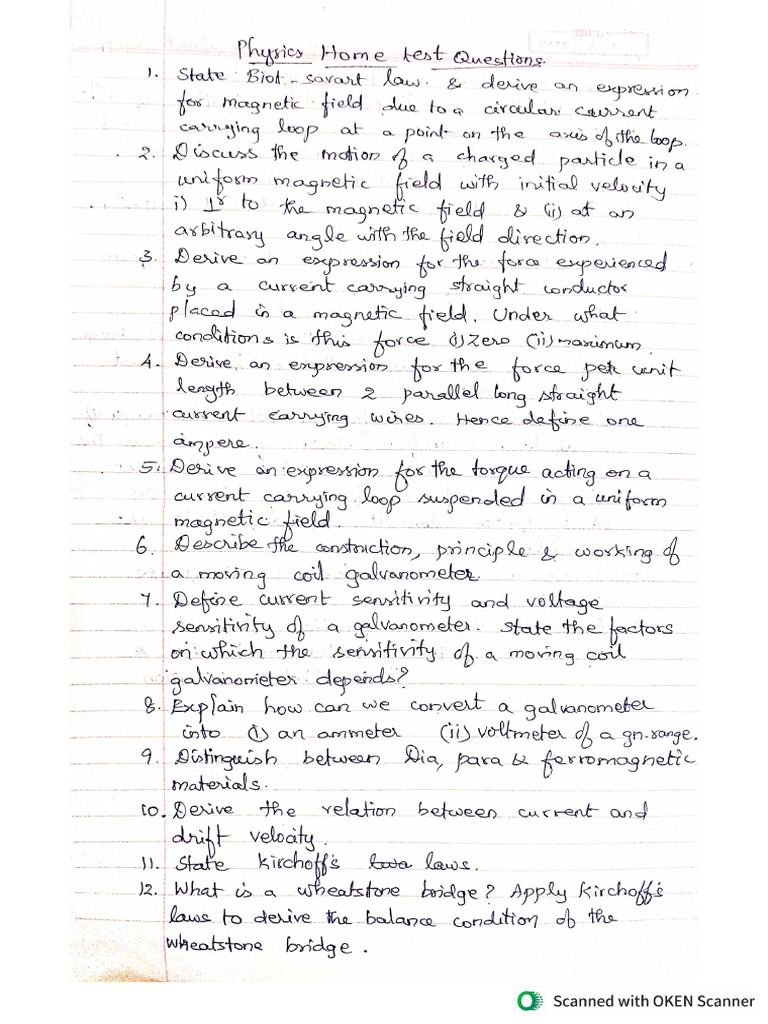 Physics Home test Questions.
1. State Biot-savart law. & derive an expression
for magnetic field due to a circular current
carrying loop at a point on the axis of the loop.
2. Discuss the motion of a charged particle in a
uniform magnetic field with initial velocity
i) ⊥r to the magnetic field & (ii) at an
arbitrary angle with the field direction.
3. Derive an expression for the force experienced
by a current carrying straight conductor
placed in a magnetic field. Under what
conditions is this force (i) zero (ii) maximum.
4. Derive an expression for the force per unit
length between 2 parallel long straight
current carrying wires. Hence define one
ampere.
5. Derive an expression for the torque acting on a
current carrying loop suspended in a uniform
magnetic field.
6. Describe the construction, principle & working of
a moving coil galvanometer.
7. Define current sensitivity and voltage
sensitivity of a galvanometer. State the factors
on which the sensitivity of a moving coil
galvanometer depends?
8. Explain how can we convert a galvanometer
into (i) an ammeter (ii) voltmeter of a gn. range.
9. Distinguish between Dia, para & ferromagnetic
materials.
10. Derive the relation between current and
drift velocity.
11. State Kirchoff's laws.
12. What is a wheatstone bridge? Apply Kirchoff's
laws to derive the balance condition of the
wheatstone bridge.
Scanned with OKEN Scanner